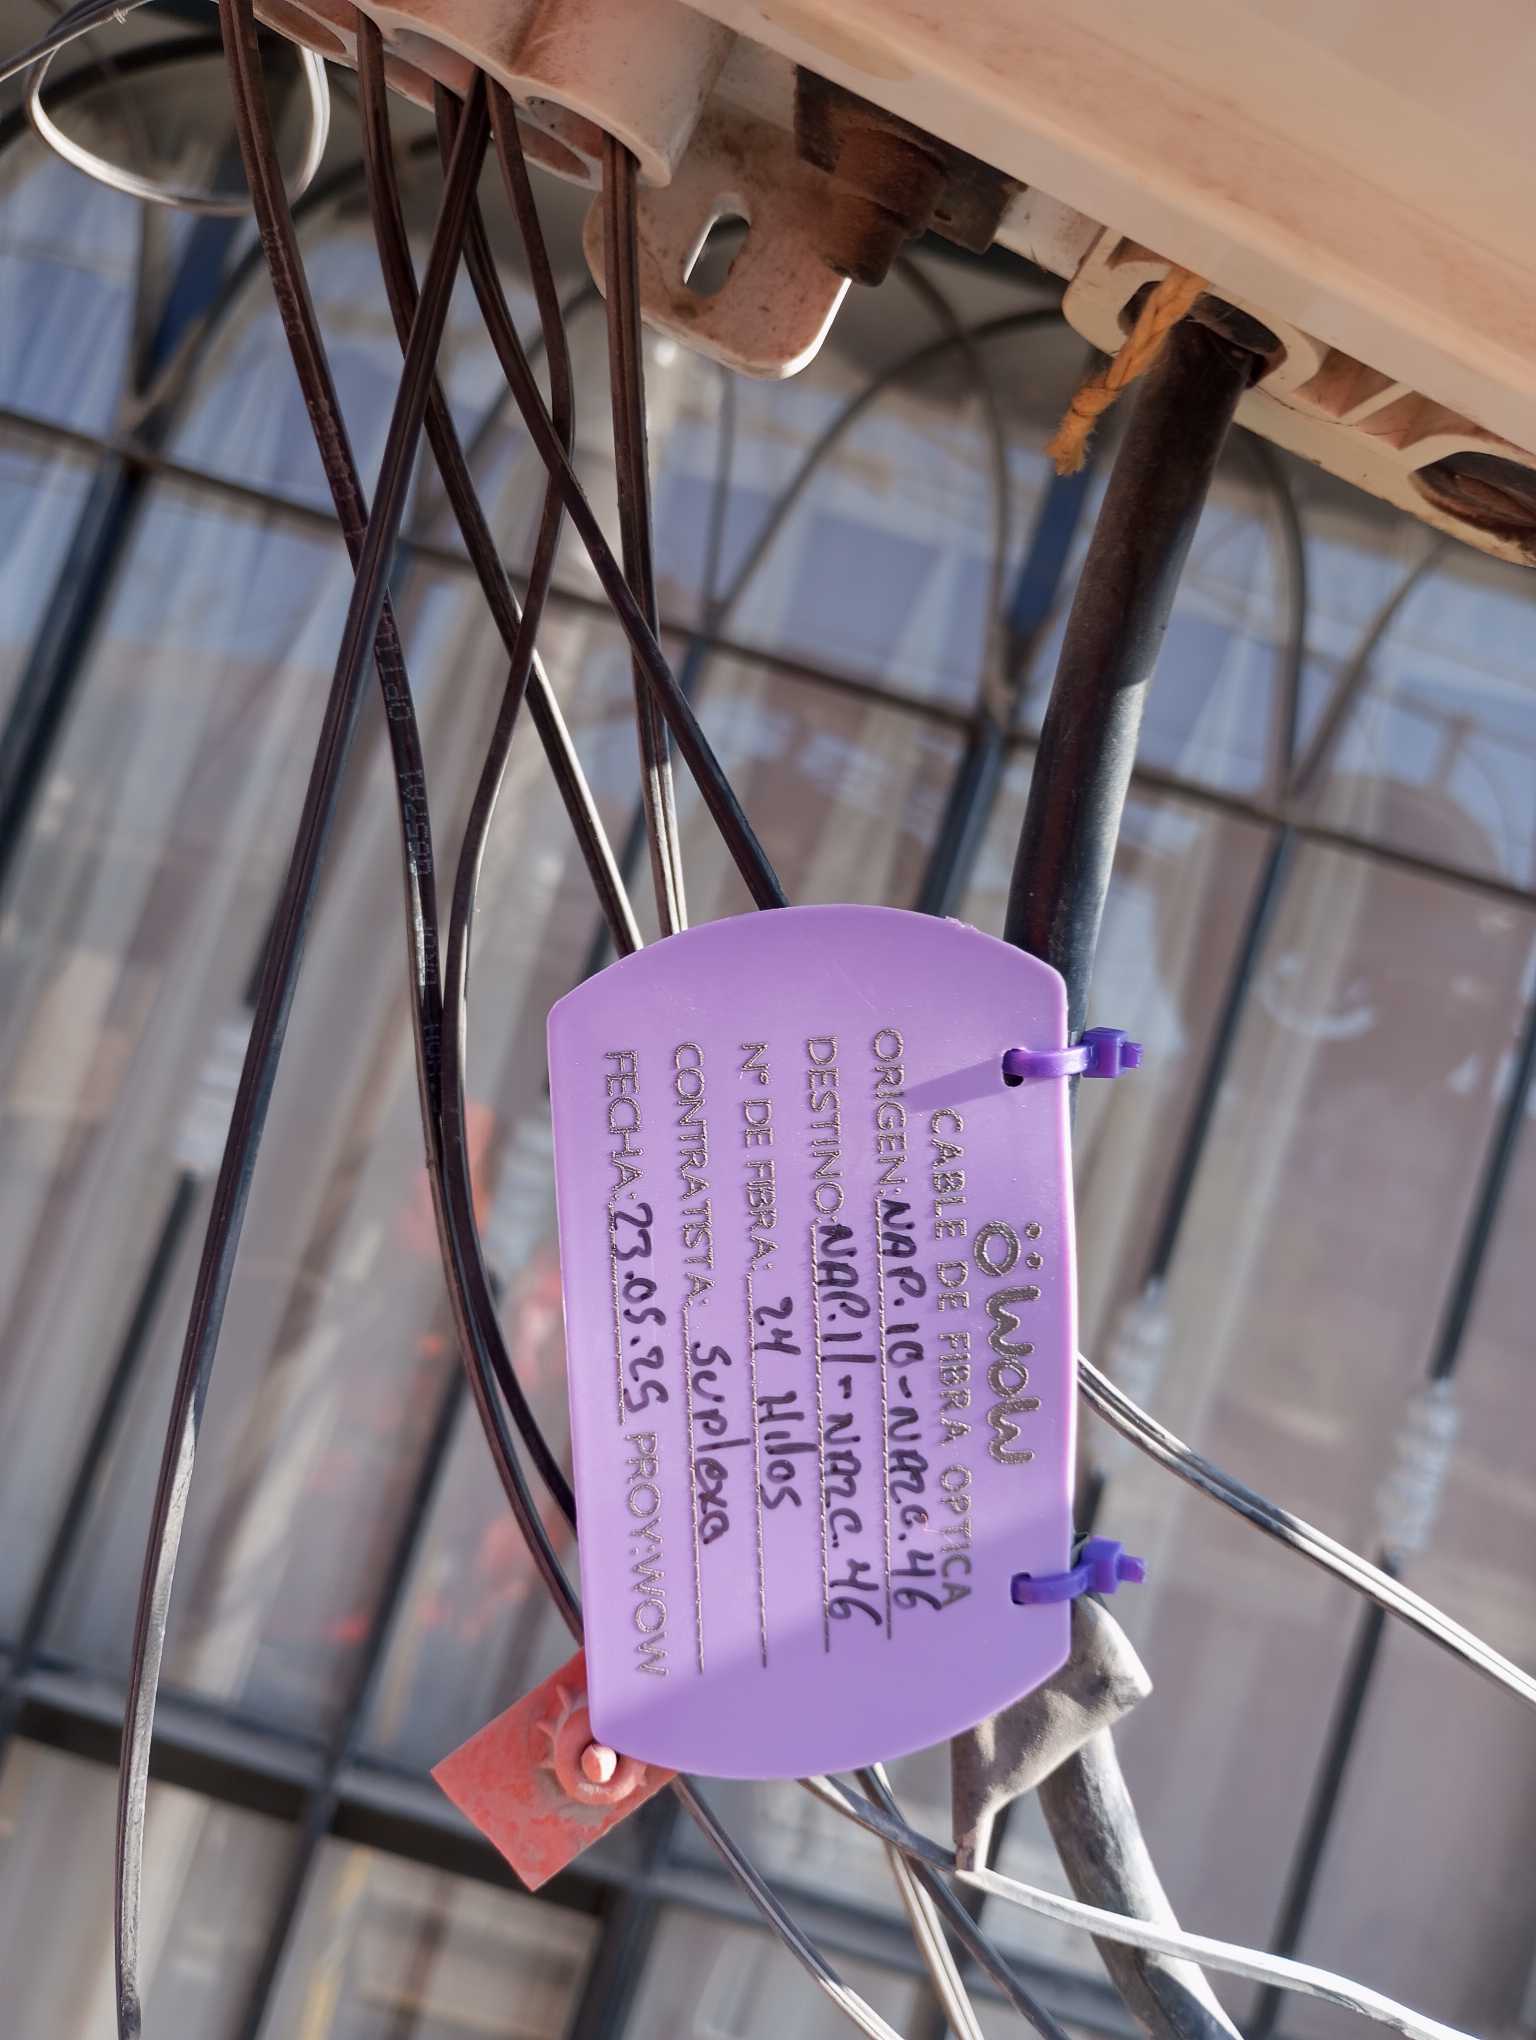 wow
CABLE DE FIBRA OPTICA
ORIGEN: NAP.10-NAZC.46
DESTINO: NAP.11-NAZC.46
N° DE FIBRA: 24 Hilos
CONTRATISTA: Suplexa
FECHA: 23.05.25 PROY: WOW